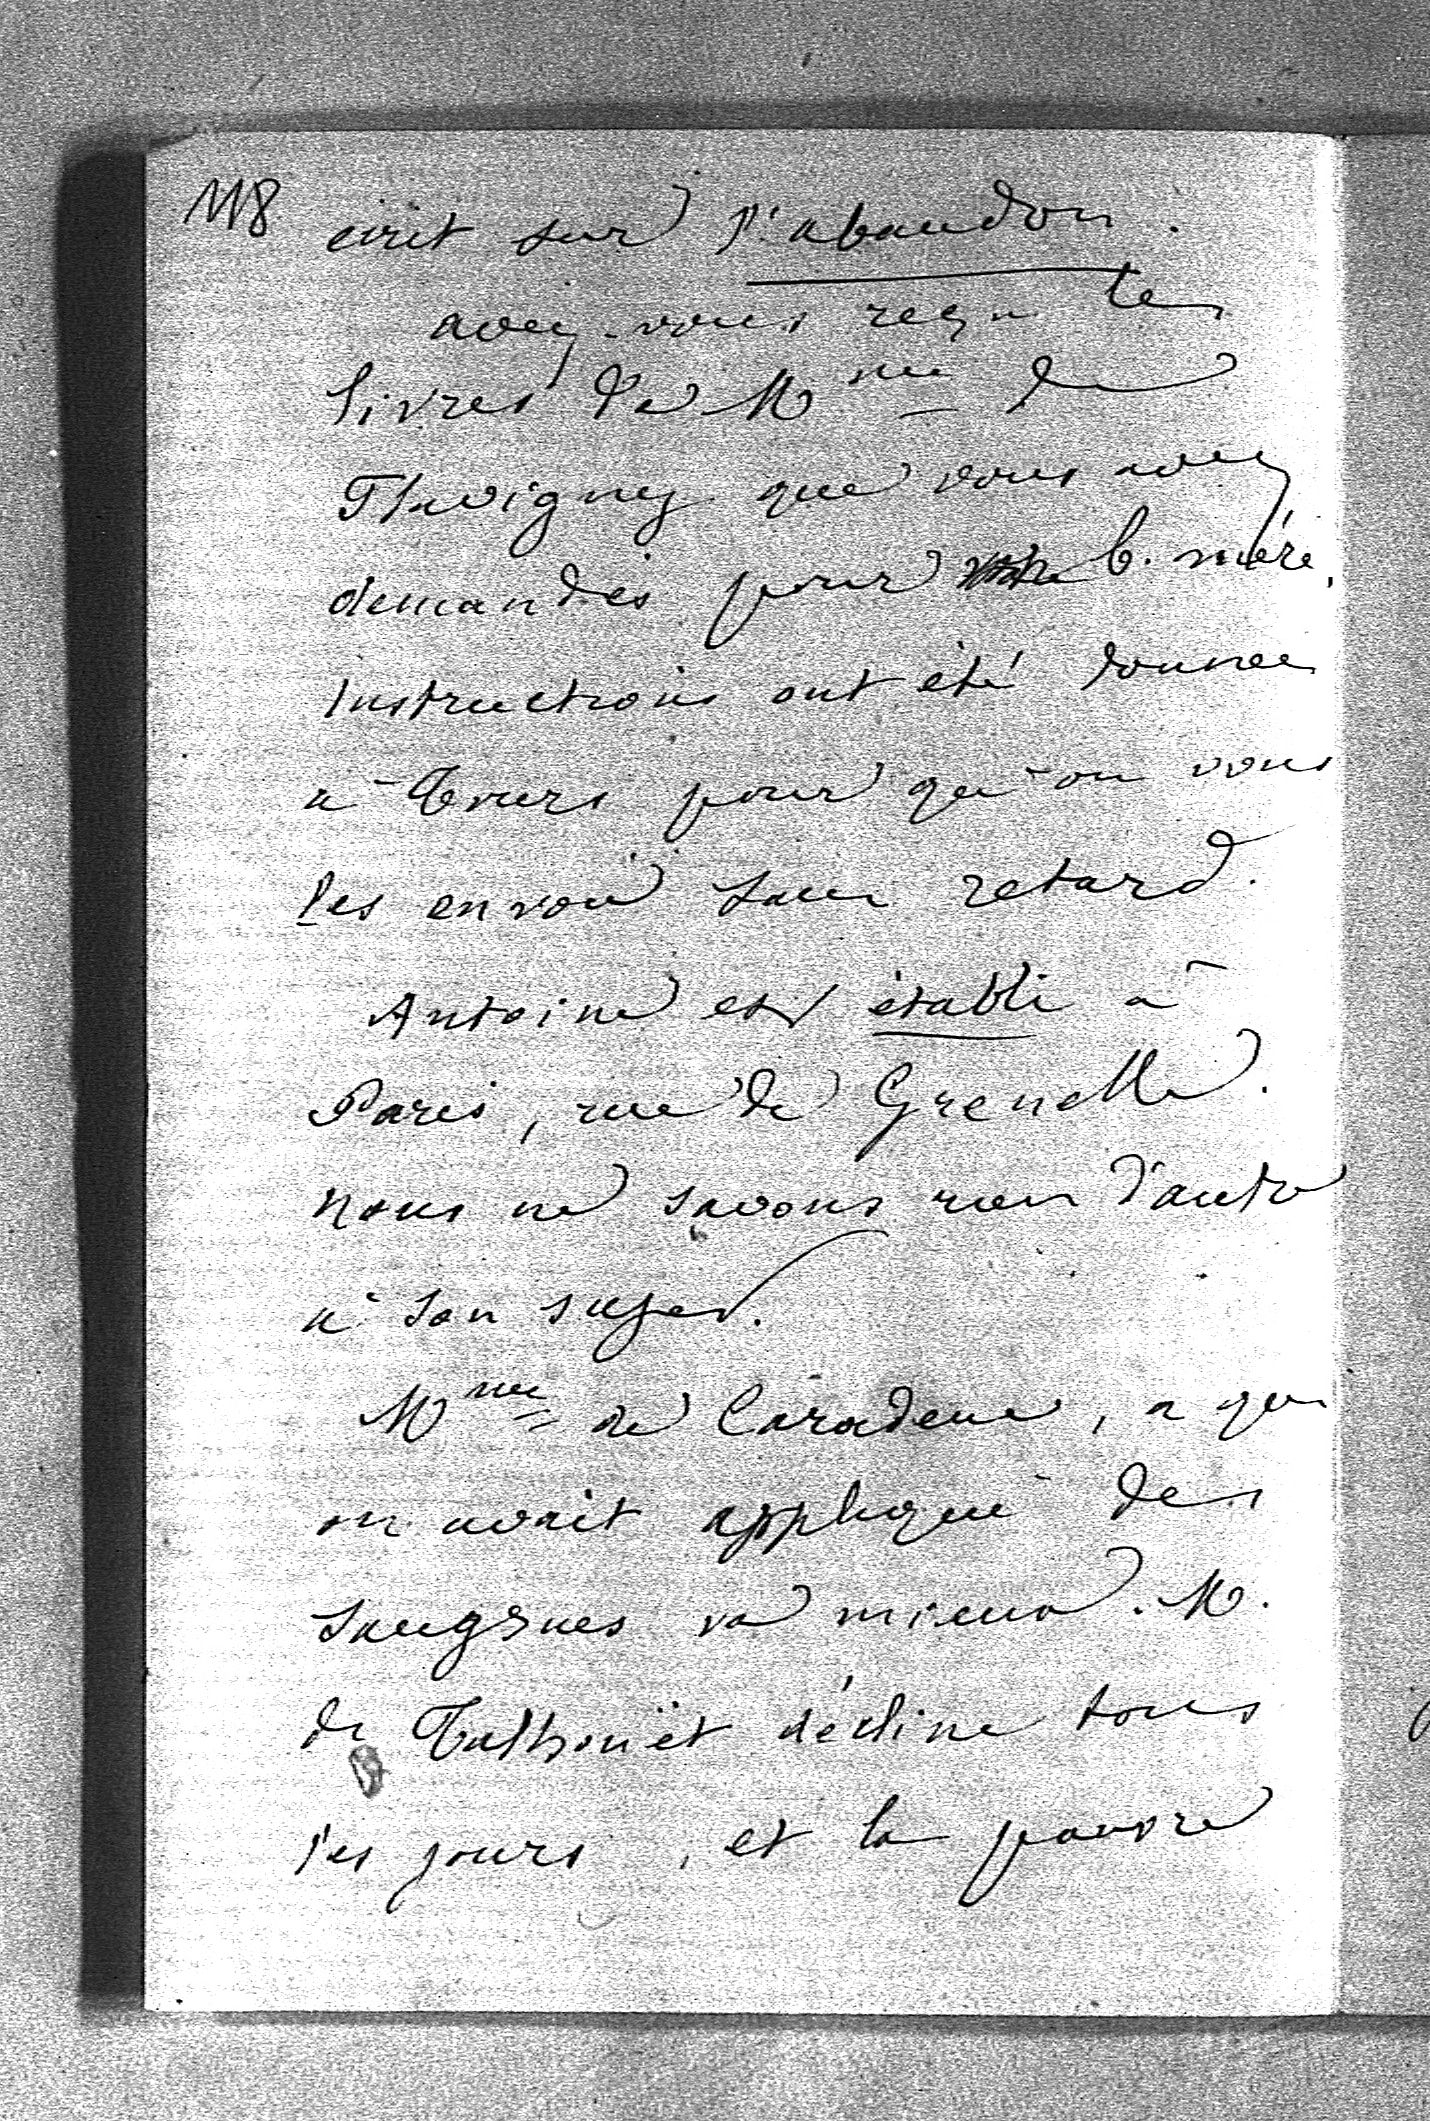 118
écrit sur l'abandon.
avez-vous reçu les
livres de Mme de
Flavigny que vous avez
demandés pour b. mère,
instructions ont été données
à Tours pour qu'on vous
les envoie sans retard.
Antoine est établi à
Paris, rue de Grenelle.
nous ne savons rien d'autre
à son sujet.
Mme de Caradeuc, a qui
on avait appliqué des
sangsues va mieux. M.
de Talhouët décline tous
les jours, et la pauvre